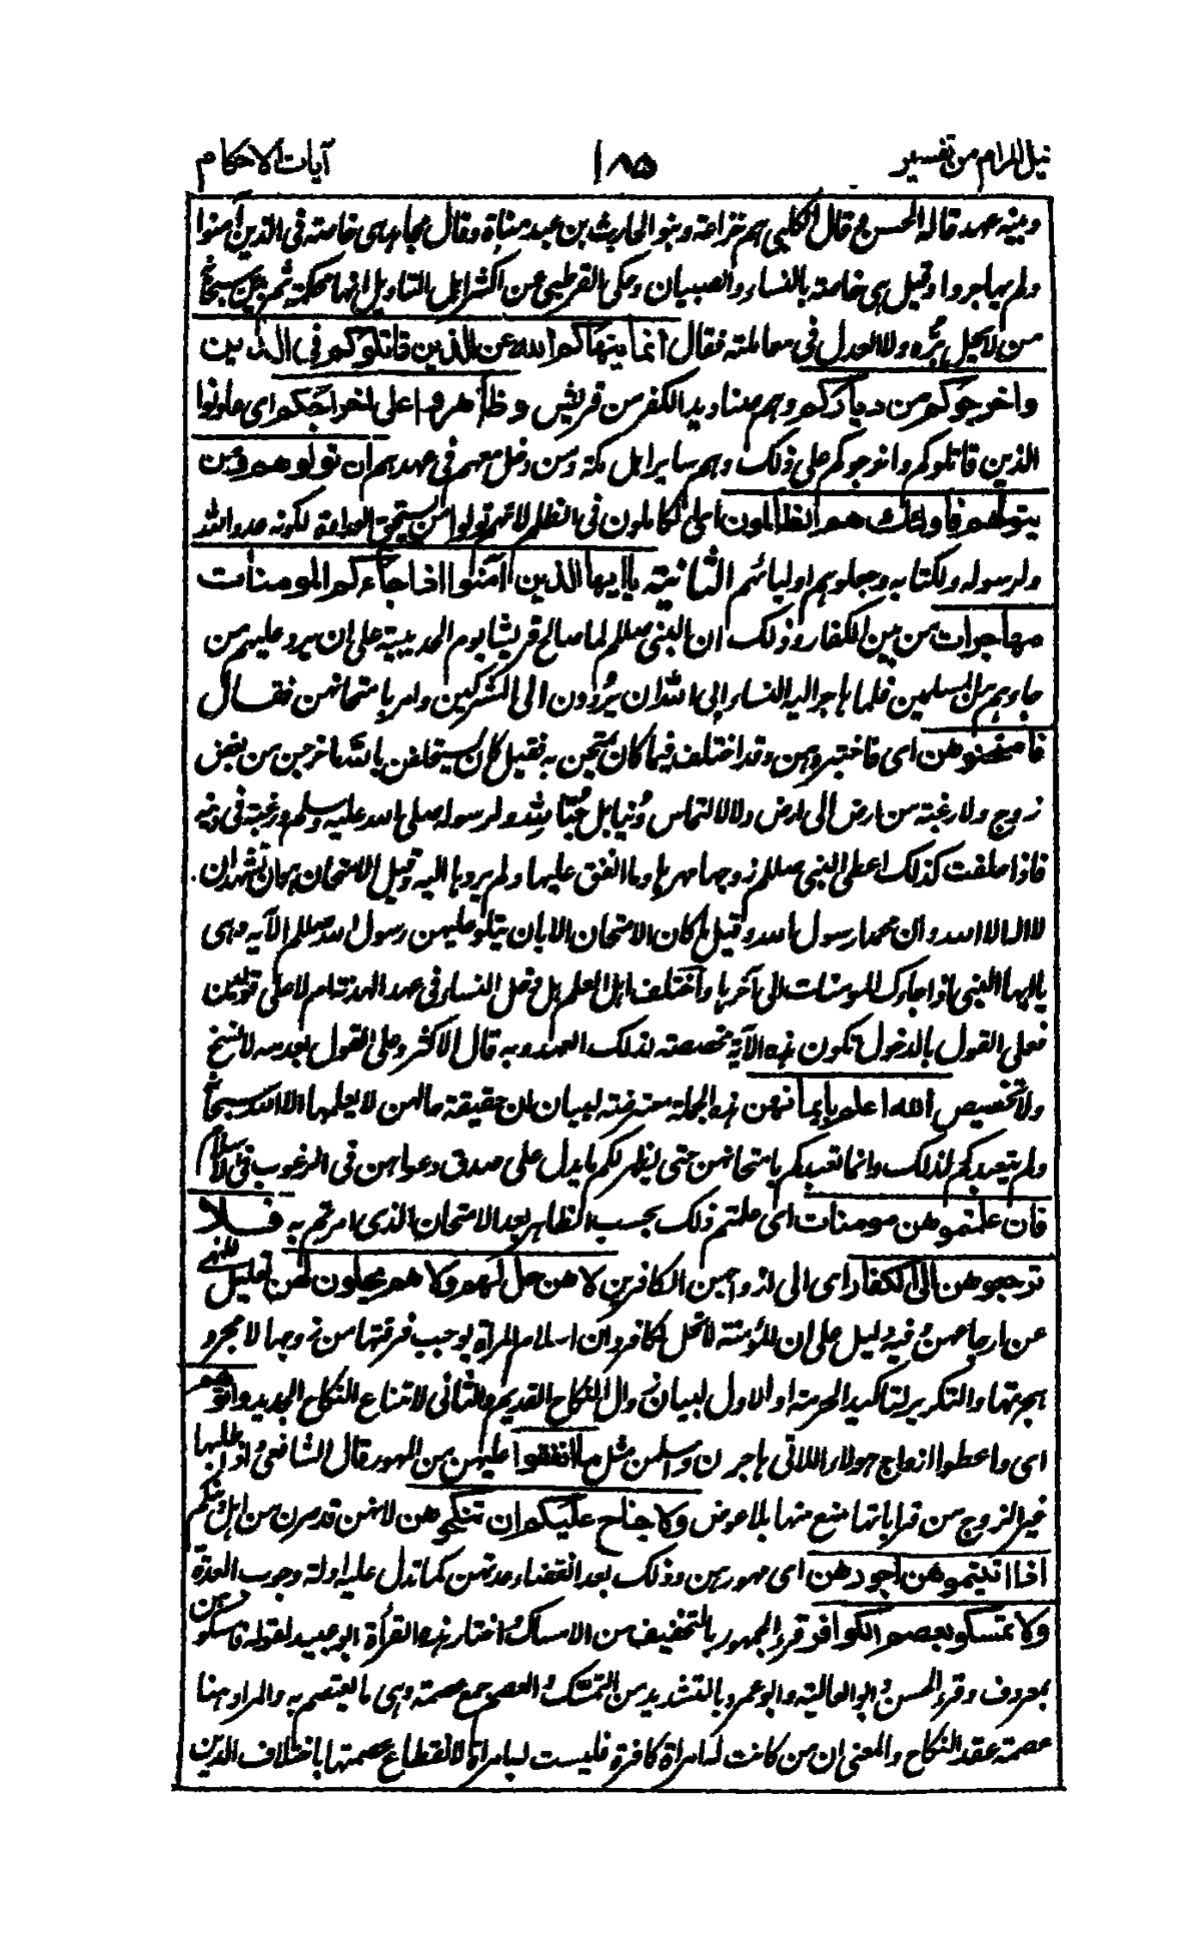 نيل المرام من تفسير ١٨٥ آيات الاحكام
وبينه عهد قاله الحسن وقال الكلبي هم خزاعة وبنو الحارث بن عبد مناة وقال مجاهد هى خاصة فى الذين آمنوا
ولم يهاجروا وقيل هى خاصة بالنساء والصبيان وحكى القرطبي عن اكثر اهل التاويل انها محكمة ثم بين سبحانه
من لا يحل بره ولا العدل فى معاملته فقال انما ينهاكم الله عن الذين قاتلوكم فى الدين
واخرجوكم من دياركم وهم صناديد الكفر من قريش وظاهروا على اخراجكم اى عاونوا
الذين قاتلوكم واخرجوكم على ذلك وهم ساير اهل مكة ومن دخل معهم فى عهدهم ان تولوهم ومن
يتولهم فاولئك هم الظالمون اى الكاملون فى الظلم لانهم تولوا من يستحق العداوة لكونه عدو الله
ولرسوله ولكتابه وجعلوهم اوليائهم الثانية يا ايها الذين آمنوا اذا جاءكم المومنات
مهاجرات من بين الكفار وذلك ان النبى صللم لما صالح قريشا يوم الحديبية على ان يرد عليهم من
جاءهم من المسلمين فلما هاجر اليه النساء ابى الله ان يرددن الى المشركين وامر بامتحانهن فقال
فامتحنوهن اى فاختبروهن وقد اختلف فيما كان يمتحن به فقيل كان يستحلفن بالله ما خرجن من بغض
زوج ولا رغبة من ارض الى ارض ولا لالتماس دنيا بل حبا لله ولرسوله صلى الله عليه وسلم ورغبة فى دينه
فاذا حلفت كذلك اعطى النبى صللم زوجها مهرها وما انفق عليها ولم يردها اليه وقيل الامتحان هو ان تشهد ان
لا اله الا الله وان محمدا رسول الله وقيل ما كان الامتحان الا بان يتلو عليهن رسول الله صللم الآية وهى
يا ايها النبى اذا جاءك المومنات الى آخرها واختلف اهل العلم هل دخل النساء فى عهد الهدنة ام لا على قولين
فعلى القول بالدخول تكون هذه الآية مخصصة لذلك العهد وبه قال الاكثر وعلى القول بعدمه لا نسخ
ولا تخصيص الله اعلم بايمانهن هذه الجملة معترضة لبيان ان حقيقة حالهن لا يعلمها الا الله سبحانه
ولم يتعبدكم بذلك وانما تعبدكم بامتحانهن حتى يظهر لكم ما يدل على صدق دعواهن فى الرغوب فى الاسلام
فان علمتموهن مومنات اى علمتم ذلك بحسب الظاهر بعد الامتحان الذى امرتم به فلا
ترجعوهن الى الكفار اى الى ازواجهن الكافرين لا هن حل لهم ولا هم يحلون لهن تعليل للنهى
عن ارجاعهن وفيه دليل على ان المؤمنة لا تحل لكافر وان اسلام المرأة يوجب فرقتها من زوجها لا مجرد
هجرتها والتكرير لتاكيد الحرمة او الاول لبيان زوال النكاح القديم والثانى لامتناع النكاح الجديد واتوهم
اى واعطوا ازواج هولاء اللاتى هاجرن واسلمن مثل ما انفقوا عليهن من المهور قال الشافعى واذا طلبها
غير الزوج من قراباتها منع منها بلا عوض ولا جناح عليكم ان تنكحوهن لانهن قد صرن من اهل دينكم
اذا اتيتموهن اجورهن اى مهورهن وذلك بعد انقضاء عدتهن كما تدل عليه ادلة وجوب العدة
ولا تمسكوا بعصم الكوافر قرء الجمهور بالتخفيف من الامساك واختار هذه القرأة ابو عبيد لقوله فامسكوهن
بمعروف وقرء الحسن وابو العالية وابو عمرو بالتشديد من التمسك والعصم جمع عصمة وهى ما يعتصم به والمراد هنا
عصمة عقد النكاح والمعنى ان من كانت له امراة كافرة فليست له بامراة لانقطاع عصمتها باختلاف الدين